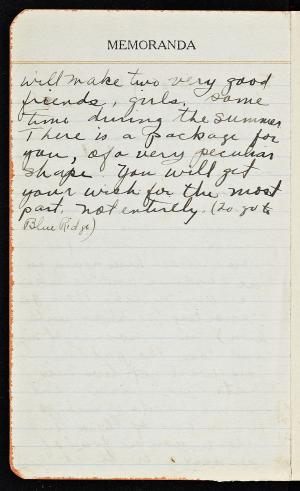 MEMORANDA
will make two very good
friends, girls. some
time during the summer
There is a package for
you, of a very peculiar
shape. You will get
your wish for the most
part. not entirely. (To go to
Blue Ridge)